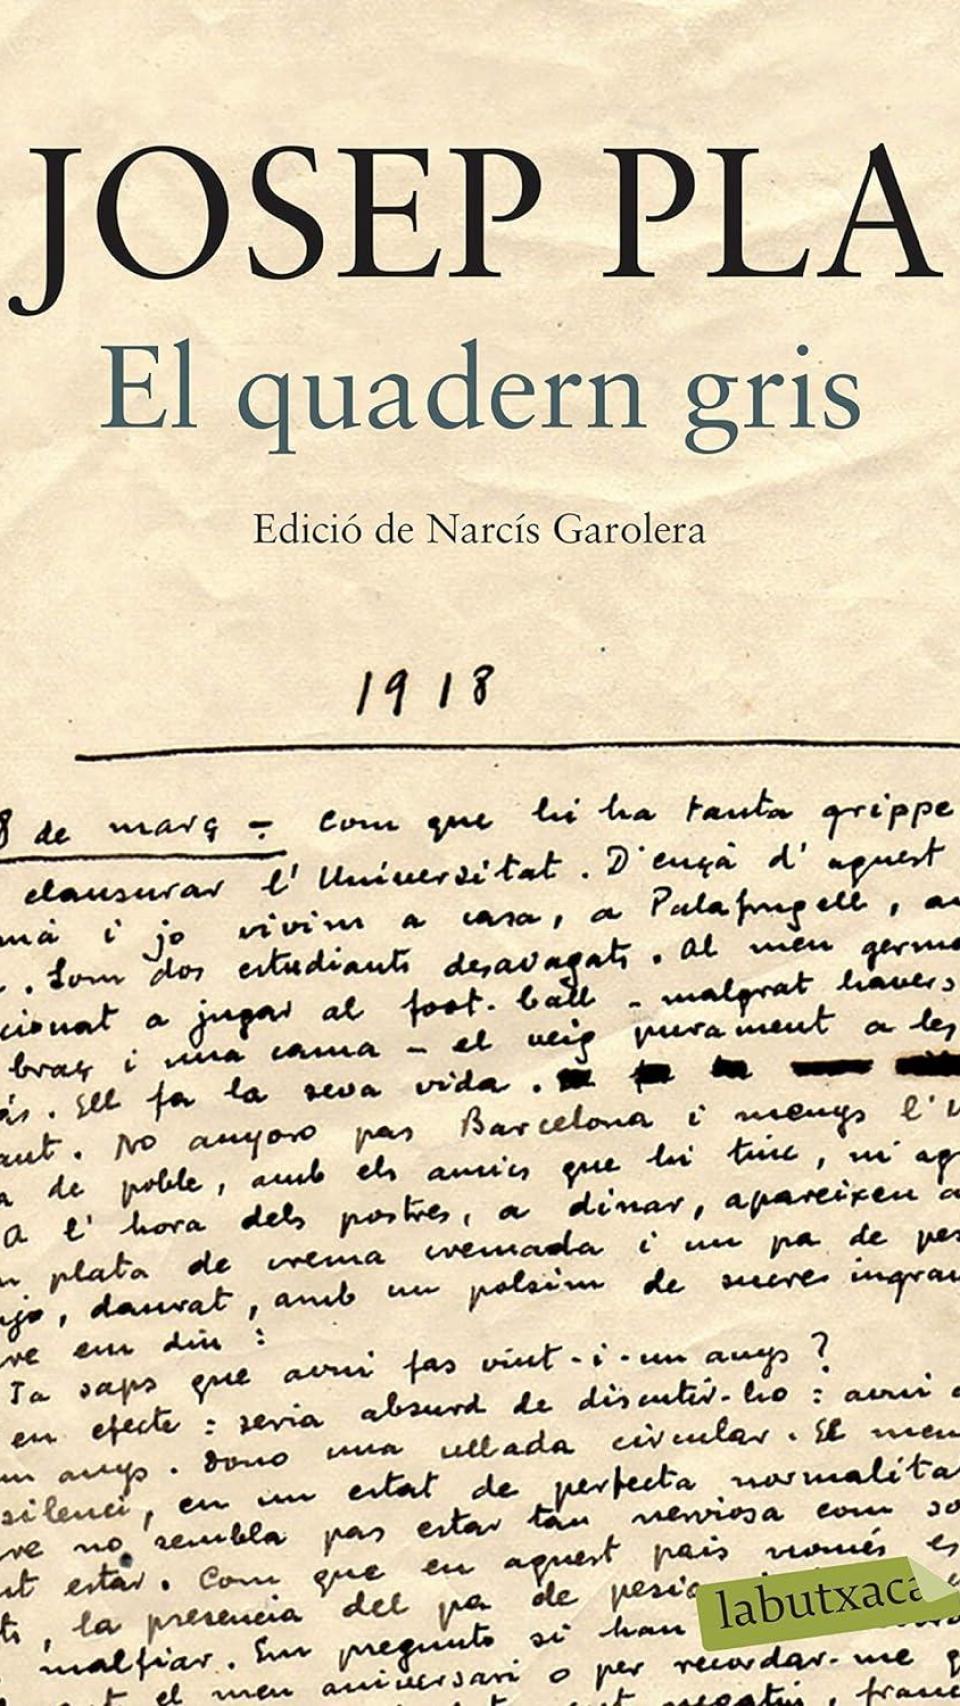 JOSEP PLA
El quadern gris
Edició de Narcís Garolera
1918
8 de març - Com que hi ha tanta grippe
clausurar l'Universitat. D'ençà d'aquest
mà i jo vivim a casa, a Palafrugell,
. Som dos estudiants desavagats. Al meu germ
cionat a jugar al foot-ball - malgrat havers
braç i una cama - el veig purament a les
às. Ell fa la seva vida.
ant. No anyoro pas Barcelona i menys l'U
a de poble, amb els amics que hi tinc, ni ag
A l'hora dels postres, a dinar, apareixen a
n plata de crema cremada i un pa de pes
njo, daurat, amb un polsim de sucre ingrav
re em diu:
Ja saps que avui fas vint-i-un anys?
en efecte: seria absurd de discutir-ho: avui
un anys. Dono una ullada circular. El meu
silenci, en un estat de perfecta normalitat
re no sembla pas estar tan nerviosa com so
nt estar. Com que en aquest país només es
ts, la presencia del pa de pessic
malfiar. Em pregunto si han
el meu aniversari o per recordar-me q
nt negatiu, franc
labutxaca